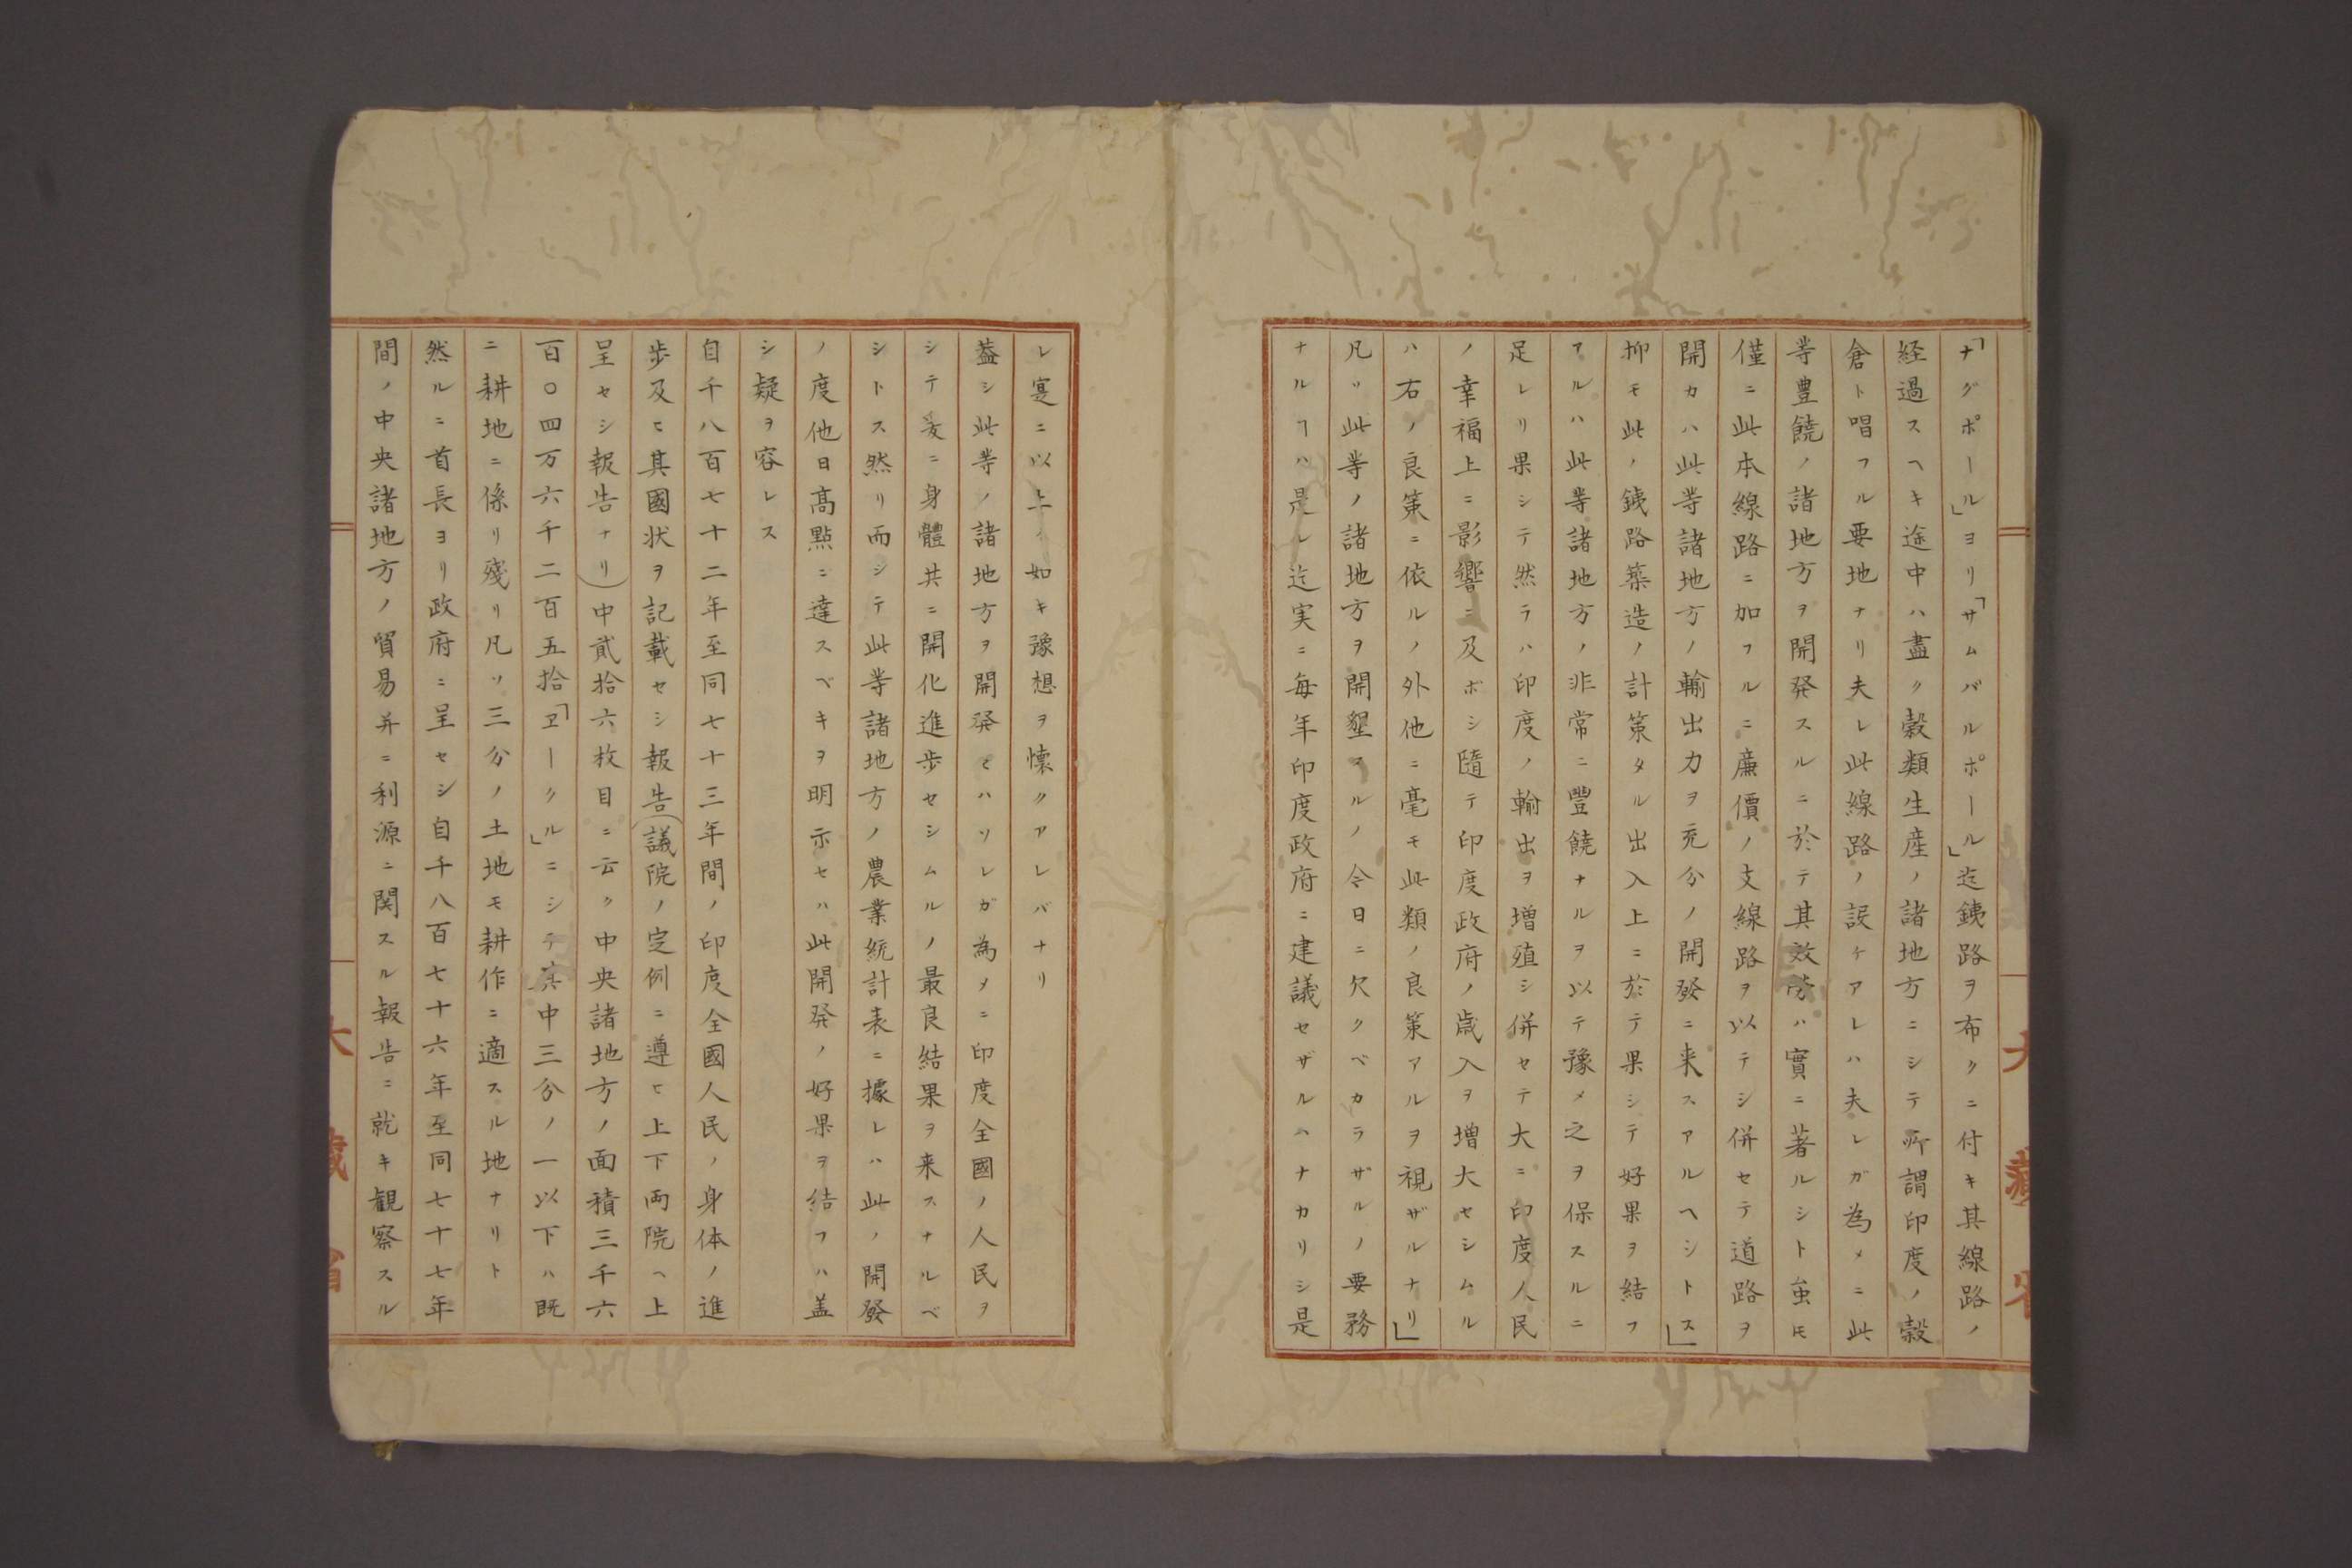 「ナグポール」ヨリ「サムバルポール」迄銕路ヲ布クニ付キ其線路ノ
経過スヘキ途中ハ盡ク穀類生産ノ諸地方ニシテ所謂印度ノ穀
倉ト唱フル要地ナリ夫レ此線路ノ設ケアレハ夫レガ為メニ此
等豊饒ノ諸地方ヲ開発スルニ於テ其效労ハ實ニ著ルシト䖝𪜈
僅ニ此本線路ニ加フルニ廉價ノ支線路ヲ以テシ併セテ道路ヲ
開カハ此等諸地方ノ輸出力ヲ充分ノ開發ニ来スアルヘシトス」
抑モ此ノ銕路築造ノ計策タル出入上ニ於テ果シテ好果ヲ結フ
アルハ此等諸地方ノ非常ニ豐饒ナルヲ以テ豫メ之ヲ保スルニ
足レリ果シテ然ラハ印度ノ輸出ヲ増殖シ併セテ大ニ印度人民
ノ幸福上ニ影響ニ及ボシ隨テ印度政府ノ歳入ヲ増大セシムル
ハ右ノ良策ニ依ルノ外他ニ毫モ此類ノ良策アルヲ視ザルナリ」
凡ソ此等ノ諸地方ヲ開墾スルノ今日ニ欠クベカラザルノ要務
ナルヿハ是レ迄実ニ毎年印度政府ニ建議セザルハナカリシ是
レ寔ニ以上ノ如キ豫想ヲ懐クアレバナリ
蓋シ此等ノ諸地方ヲ開発セハソレガ為メニ印度全國ノ人民ヲ
シテ交ニ身體共ニ開化進歩セシムルノ最良結果ヲ来スナルベ
シトス然リ而シテ此等諸地方ノ農業統計表ニ據レハ此ノ開發
ノ度他日髙點ニ達スベキヲ明示セハ此開発ノ好果ヲ結フハ盖
シ疑ヲ容レス
自千八百七十二年至同七十三年間ノ印度全國人民ノ身体ノ進
歩及ヒ其國状ヲ記載セシ報告(議院ノ定例ニ遵ヒ上下両院ヘ上
呈セシ報告ナリ)中貳拾六枚目ニ云ク中央諸地方ノ面積三千六
百〇四万六千二百五拾「ヱークル」ニシテ其中三分ノ一以下ハ既
ニ耕地ニ係リ殘リ凡ソ三分ノ土地モ耕作ニ適スル地ナリト
然ルニ首長ヨリ政府ニ呈セシ自千八百七十六年至同七十七年
間ノ中央諸地方ノ貿易并ニ利源ニ関スル報告ニ就キ観察スル
大藏省